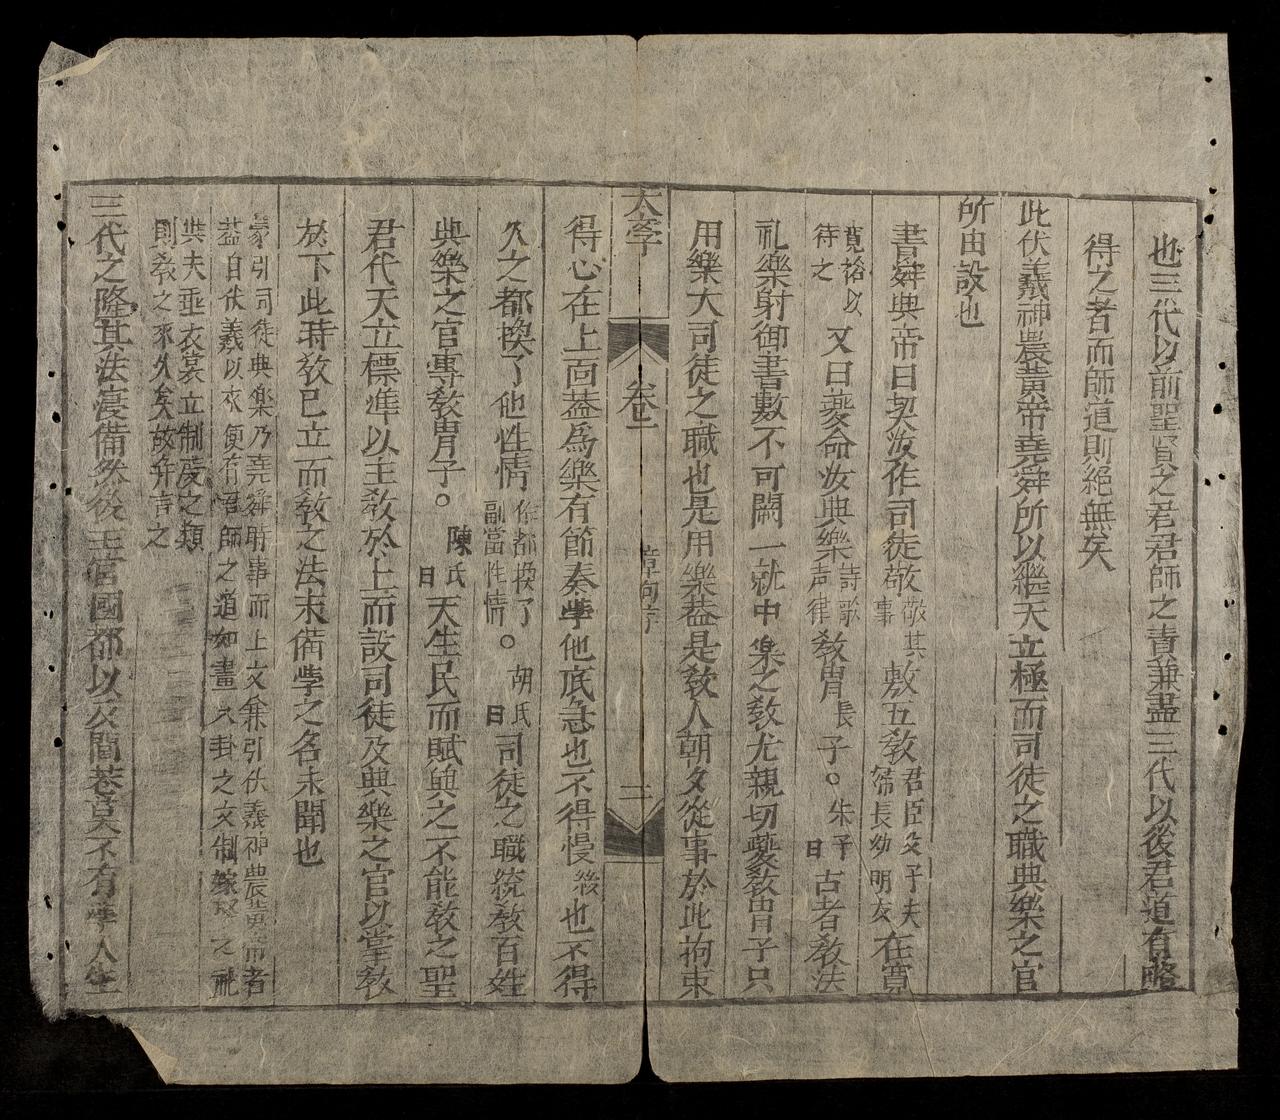 也三代以前聖賢之君君師之責兼盡三代以後君道有略
得之者而師道則絕無矣
此伏羲神農黃帝堯舜所以繼天立極而司徒之職典樂之官
所由設也
書舜典帝曰契汝作司徒敬敬其事敷五敎君臣父子夫婦長幼朋友在寬
寬裕以待之又曰夔命汝典樂詩歌声律敎冑長子○朱子曰古者敎法
礼樂射御書數不可闕一就中樂之敎尤親切夔敎冑子只
用樂大司徒之職也是用樂蓋是敎人朝夕從事於此拘束
大斈
卷之一
章句序
二
得心在上面蓋爲樂有節奏斈他底急也不得慢緩也不得
久之都換了他性情作都換了副當性情○胡氏曰司徒之職統敎百姓
典樂之官專敎冑子○陳氏曰天生民而賦與之不能敎之聖
君代天立標準以主敎於上而設司徒及典樂之官以掌敎
於下此時敎已立而敎之法未備斈之名未聞也
蒙引司徒典樂乃堯舜時事而上文兼引伏羲神農黃帝者
蓋自伏羲以來便有君師之道如畫八卦之文制嫁娶之礼
與夫垂衣裳立制度之類
則敎之來久矣故幷言之
三代之隆其法寖備然後王宮國都以及閭巷莫不有斈人生